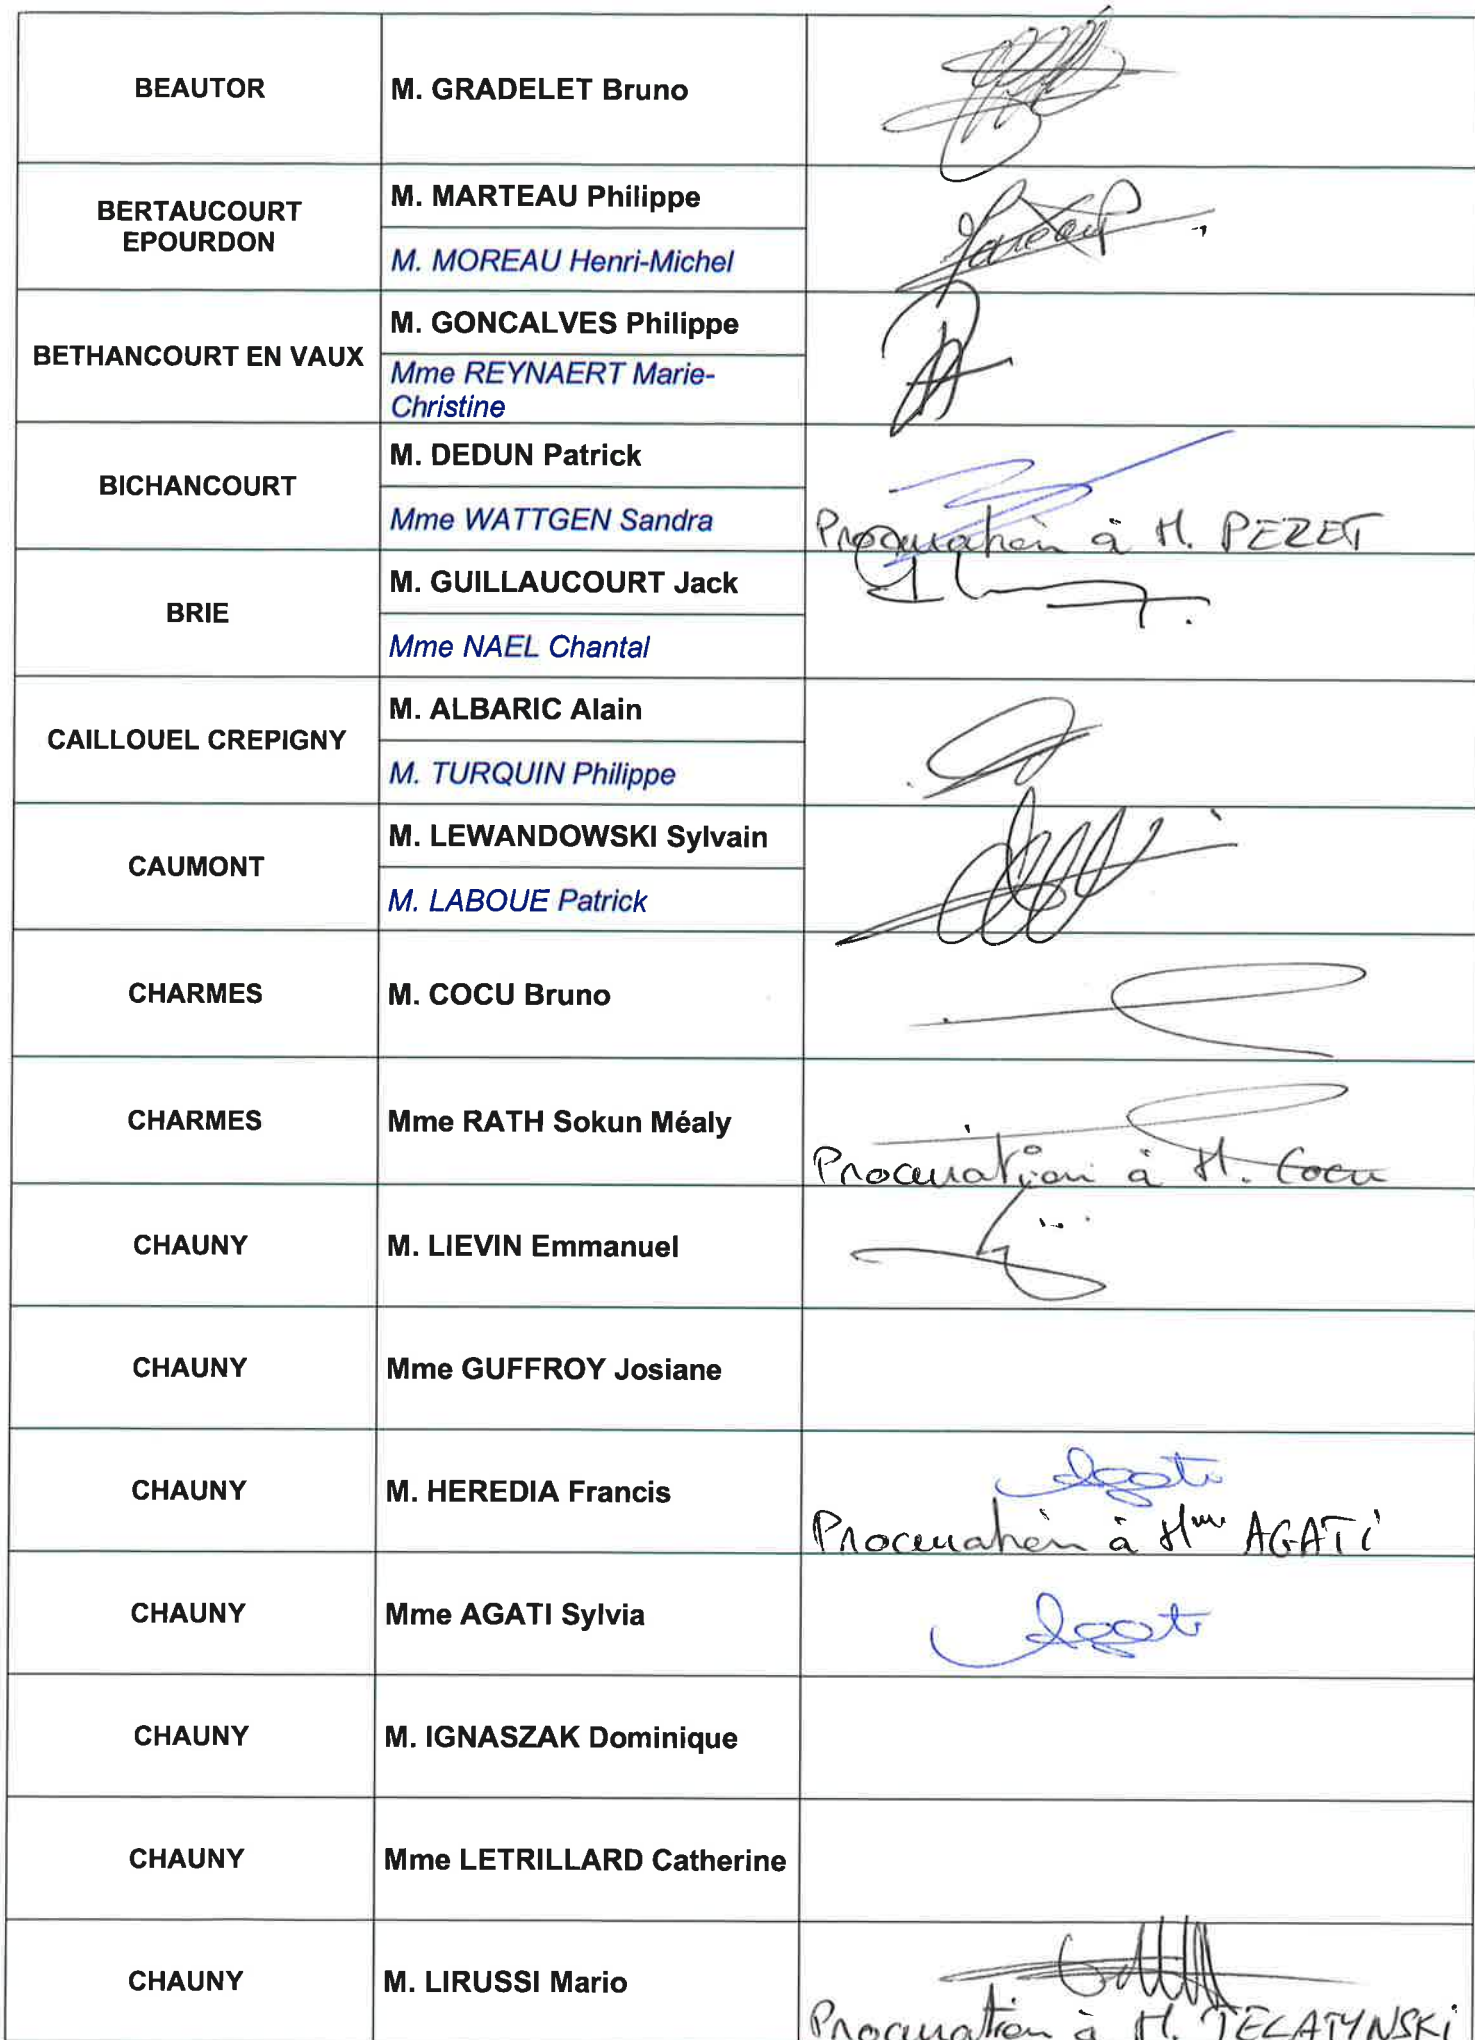 BEAUTOR
M. GRADELET Bruno
BERTAUCOURT
EPOURDON
M. MARTEAU Philippe
M. MOREAU Henri-Michel
BETHANCOURT EN VAUX
M. GONCALVES Philippe
Mme REYNAERT Marie-
Christine
BICHANCOURT
M. DEDUN Patrick
Mme WATTGEN Sandra
Procuration à M. PEZET
BRIE
M. GUILLAUCOURT Jack
Mme NAEL Chantal
CAILLOUEL CREPIGNY
M. ALBARIC Alain
M. TURQUIN Philippe
CAUMONT
M. LEWANDOWSKI Sylvain
M. LABOUE Patrick
CHARMES
M. COCU Bruno
CHARMES
Mme RATH Sokun Méaly
Procuration à M. Cocu
CHAUNY
M. LIEVIN Emmanuel
CHAUNY
Mme GUFFROY Josiane
CHAUNY
M. HEREDIA Francis
Agati
Procuration à Mme AGATI
CHAUNY
Mme AGATI Sylvia
Agati
CHAUNY
M. IGNASZAK Dominique
CHAUNY
Mme LETRILLARD Catherine
CHAUNY
M. LIRUSSI Mario
Procuration à M. TELATYNSKI